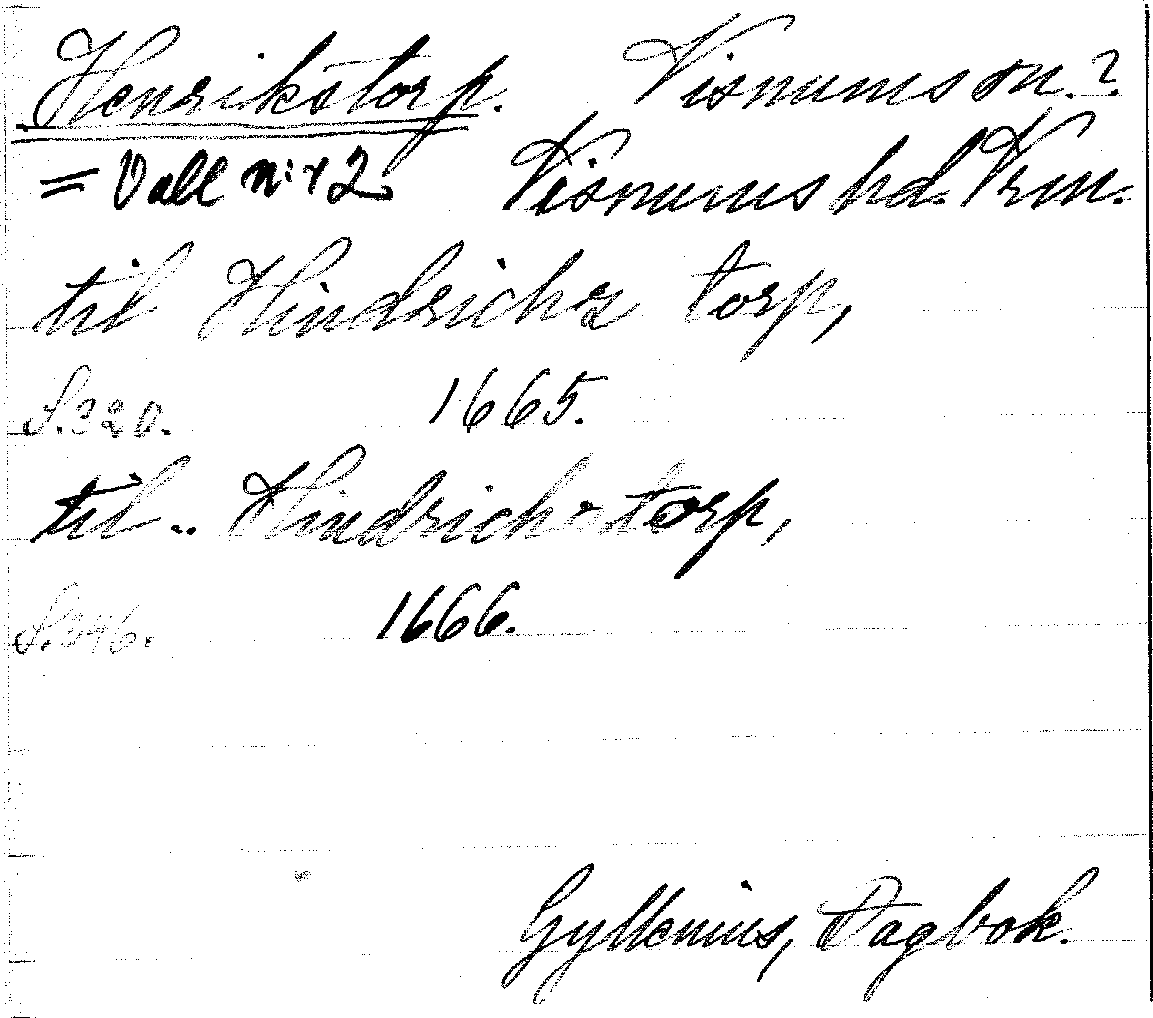 Henrikstorp. Visnums sn.?
= Vall n:r 2 Visnums hd. Vrm.
til Hindrichs torp,
S. 320. 1665.
til .. Hindrichstorp,
S. 346. 1666.
Gyllenius, Dagbok.